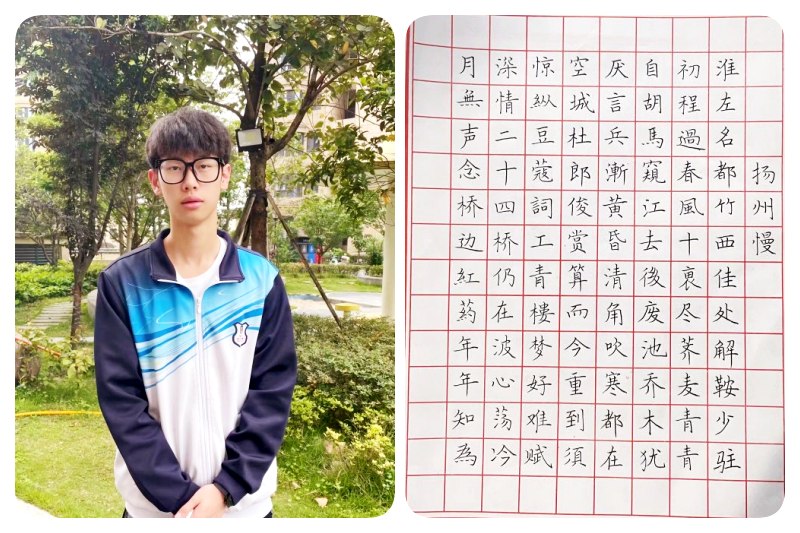 扬州慢
淮左名都竹西佳处解鞍少驻
初程過春風十裏尽荠麦青青
自胡馬窺江去後废池乔木犹
厌言兵漸黄昏清角吹寒都在
空城杜郎俊赏算而今重到須
惊纵豆蔻詞工青樓梦好难赋
深情二十四桥仍在波心荡冷
月無声念桥边紅葯年年知為